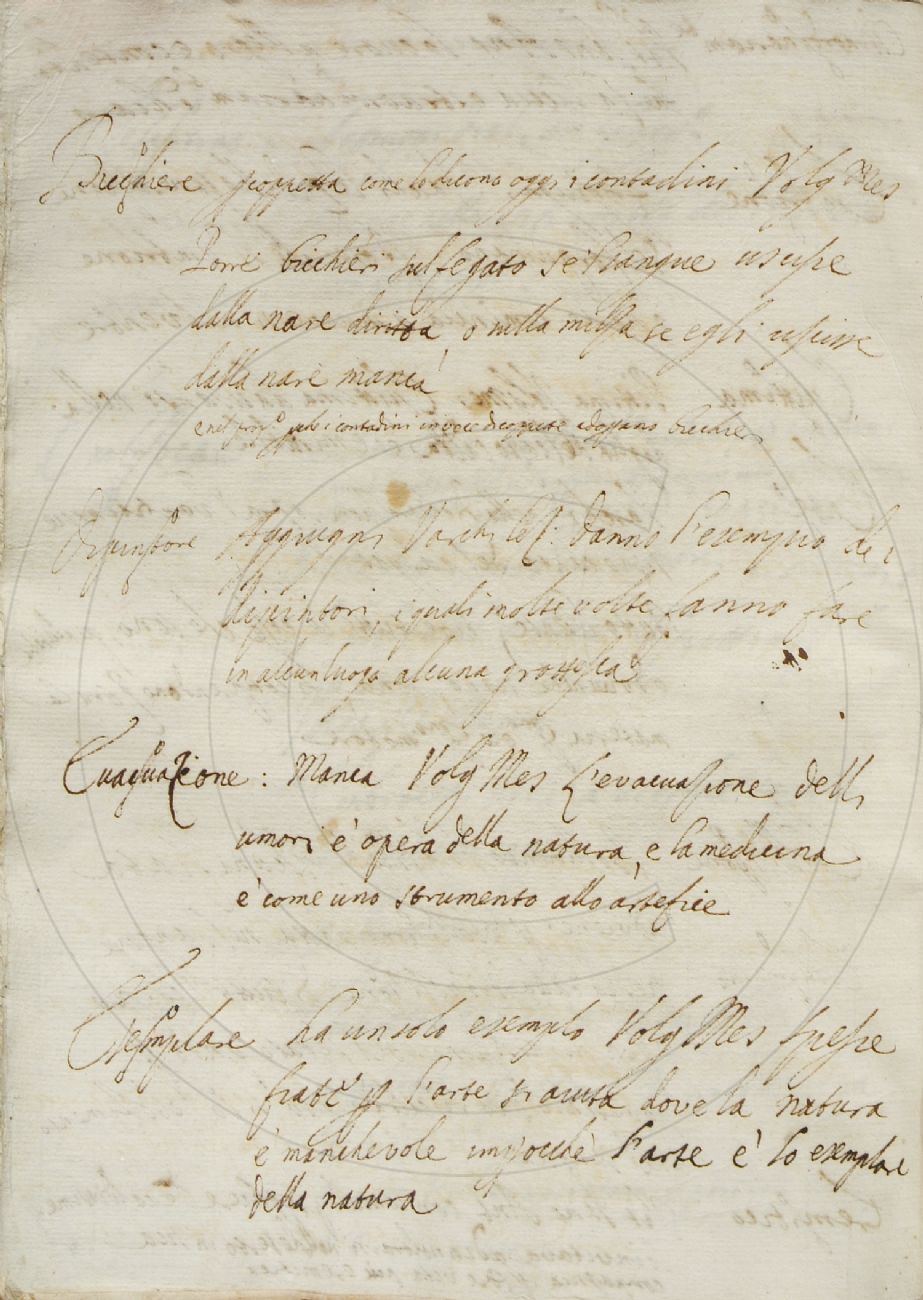 Bicchiere coppetta come la dicono oggi i contadini Volg Mes
Porre bicchieri sul fegato se 'l sangue uscisse
dalla nare diritta o nella milza se egli uscisse
dalla nare manca
i contadini in voce di coppette adoprano bicchieri
Dipintore Aggiugni Varchi Lez: danno l'esempio de i
dipintori, i quali molte volte fanno fare
in alcun luogo alcuna grottesca
Evacuazione: Manca Volg Mes L'evacuazione delli
umori è opera della natura, e la medicina
è come uno strumento allo artefice
Esemplare ha un solo esemplo Volg Mes spesse
fiate l'arte s'aiuta dove la natura
è manchevole impocchè l'arte è lo exemplare
della natura